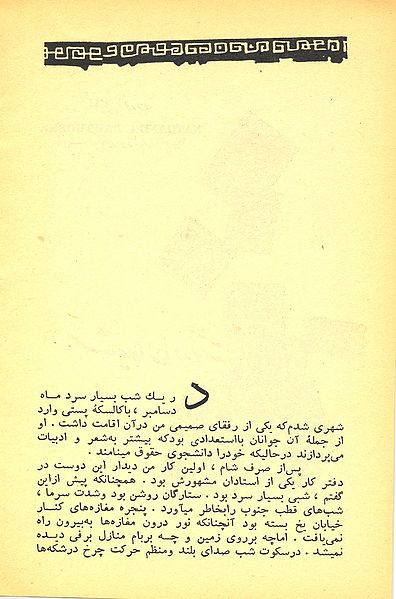 در یك شب بسیار سرد ماه
دسامبر ، باکالسکهٔ پستی وارد
شهری شدم‌که یکی از رفقای صمیمی من درآن اقامت داشت . او
از جملهٔ آن جوانان بااستعدادی بودکه بیشتر به‌شعر و ادبیات
می‌پردازند درحالیکه خودرا دانشجوی حقوق مینامند .
پس‌از صرف شام ، اولین کار من دیدار این دوست در
دفتر کار یکی از استادان مشهورش بود . همچنانکه پیش ازاین
گفتم ، شبی بسیار سرد بود . ستارگان روشن بود وشدت سرما ،
شب‌های قطب جنوب رابخاطر میآورد . پنجره مغازه‌های کنــار
خیابان یخ بسته بود آنچنانکه نور درون مغازه‌ها به‌بیرون راه
نمی‌یافت . اماچه برروی زمین و چــه بربام منازل برفی دیــده
نمیشد . درسکوت شب صدای بلند ومنظم حرکت چرخ درشکه‌ها